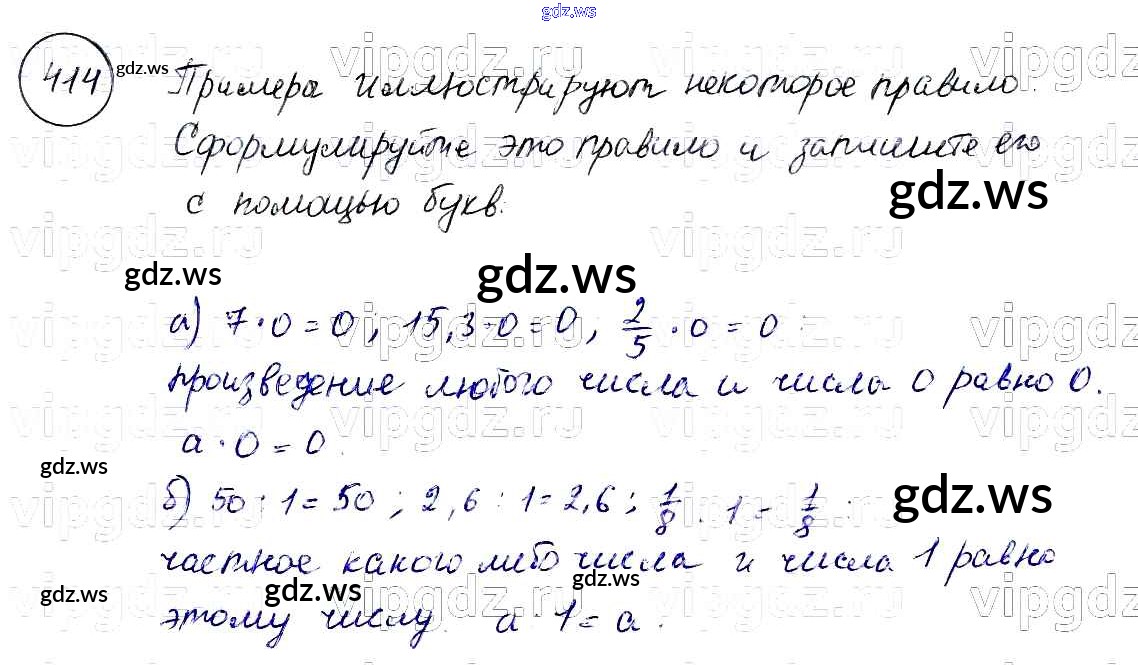 gdz.ws
414 gdz.ws Примеры иллюстрируют некоторое правило.
Сформулируйте это правило и запишите его
gdz.ws
с помощью букв.
gdz.ws gdz.ws
а) 7·0=0; 15,3·0=0; 2/5·0=0:
произведение любого числа и числа 0 равно 0.
а·0=0.
gdz.ws
б) 50:1=50; 2,6:1=2,6; 1/8:1=1/8:
gdz.ws
частное какого либо числа и числа 1 равно
gdz.ws gdz.ws gdz.ws
этому числу. а:1=а.
vipgdz.ru vipgdz.ru vipgdz.ru vipgdz.ru